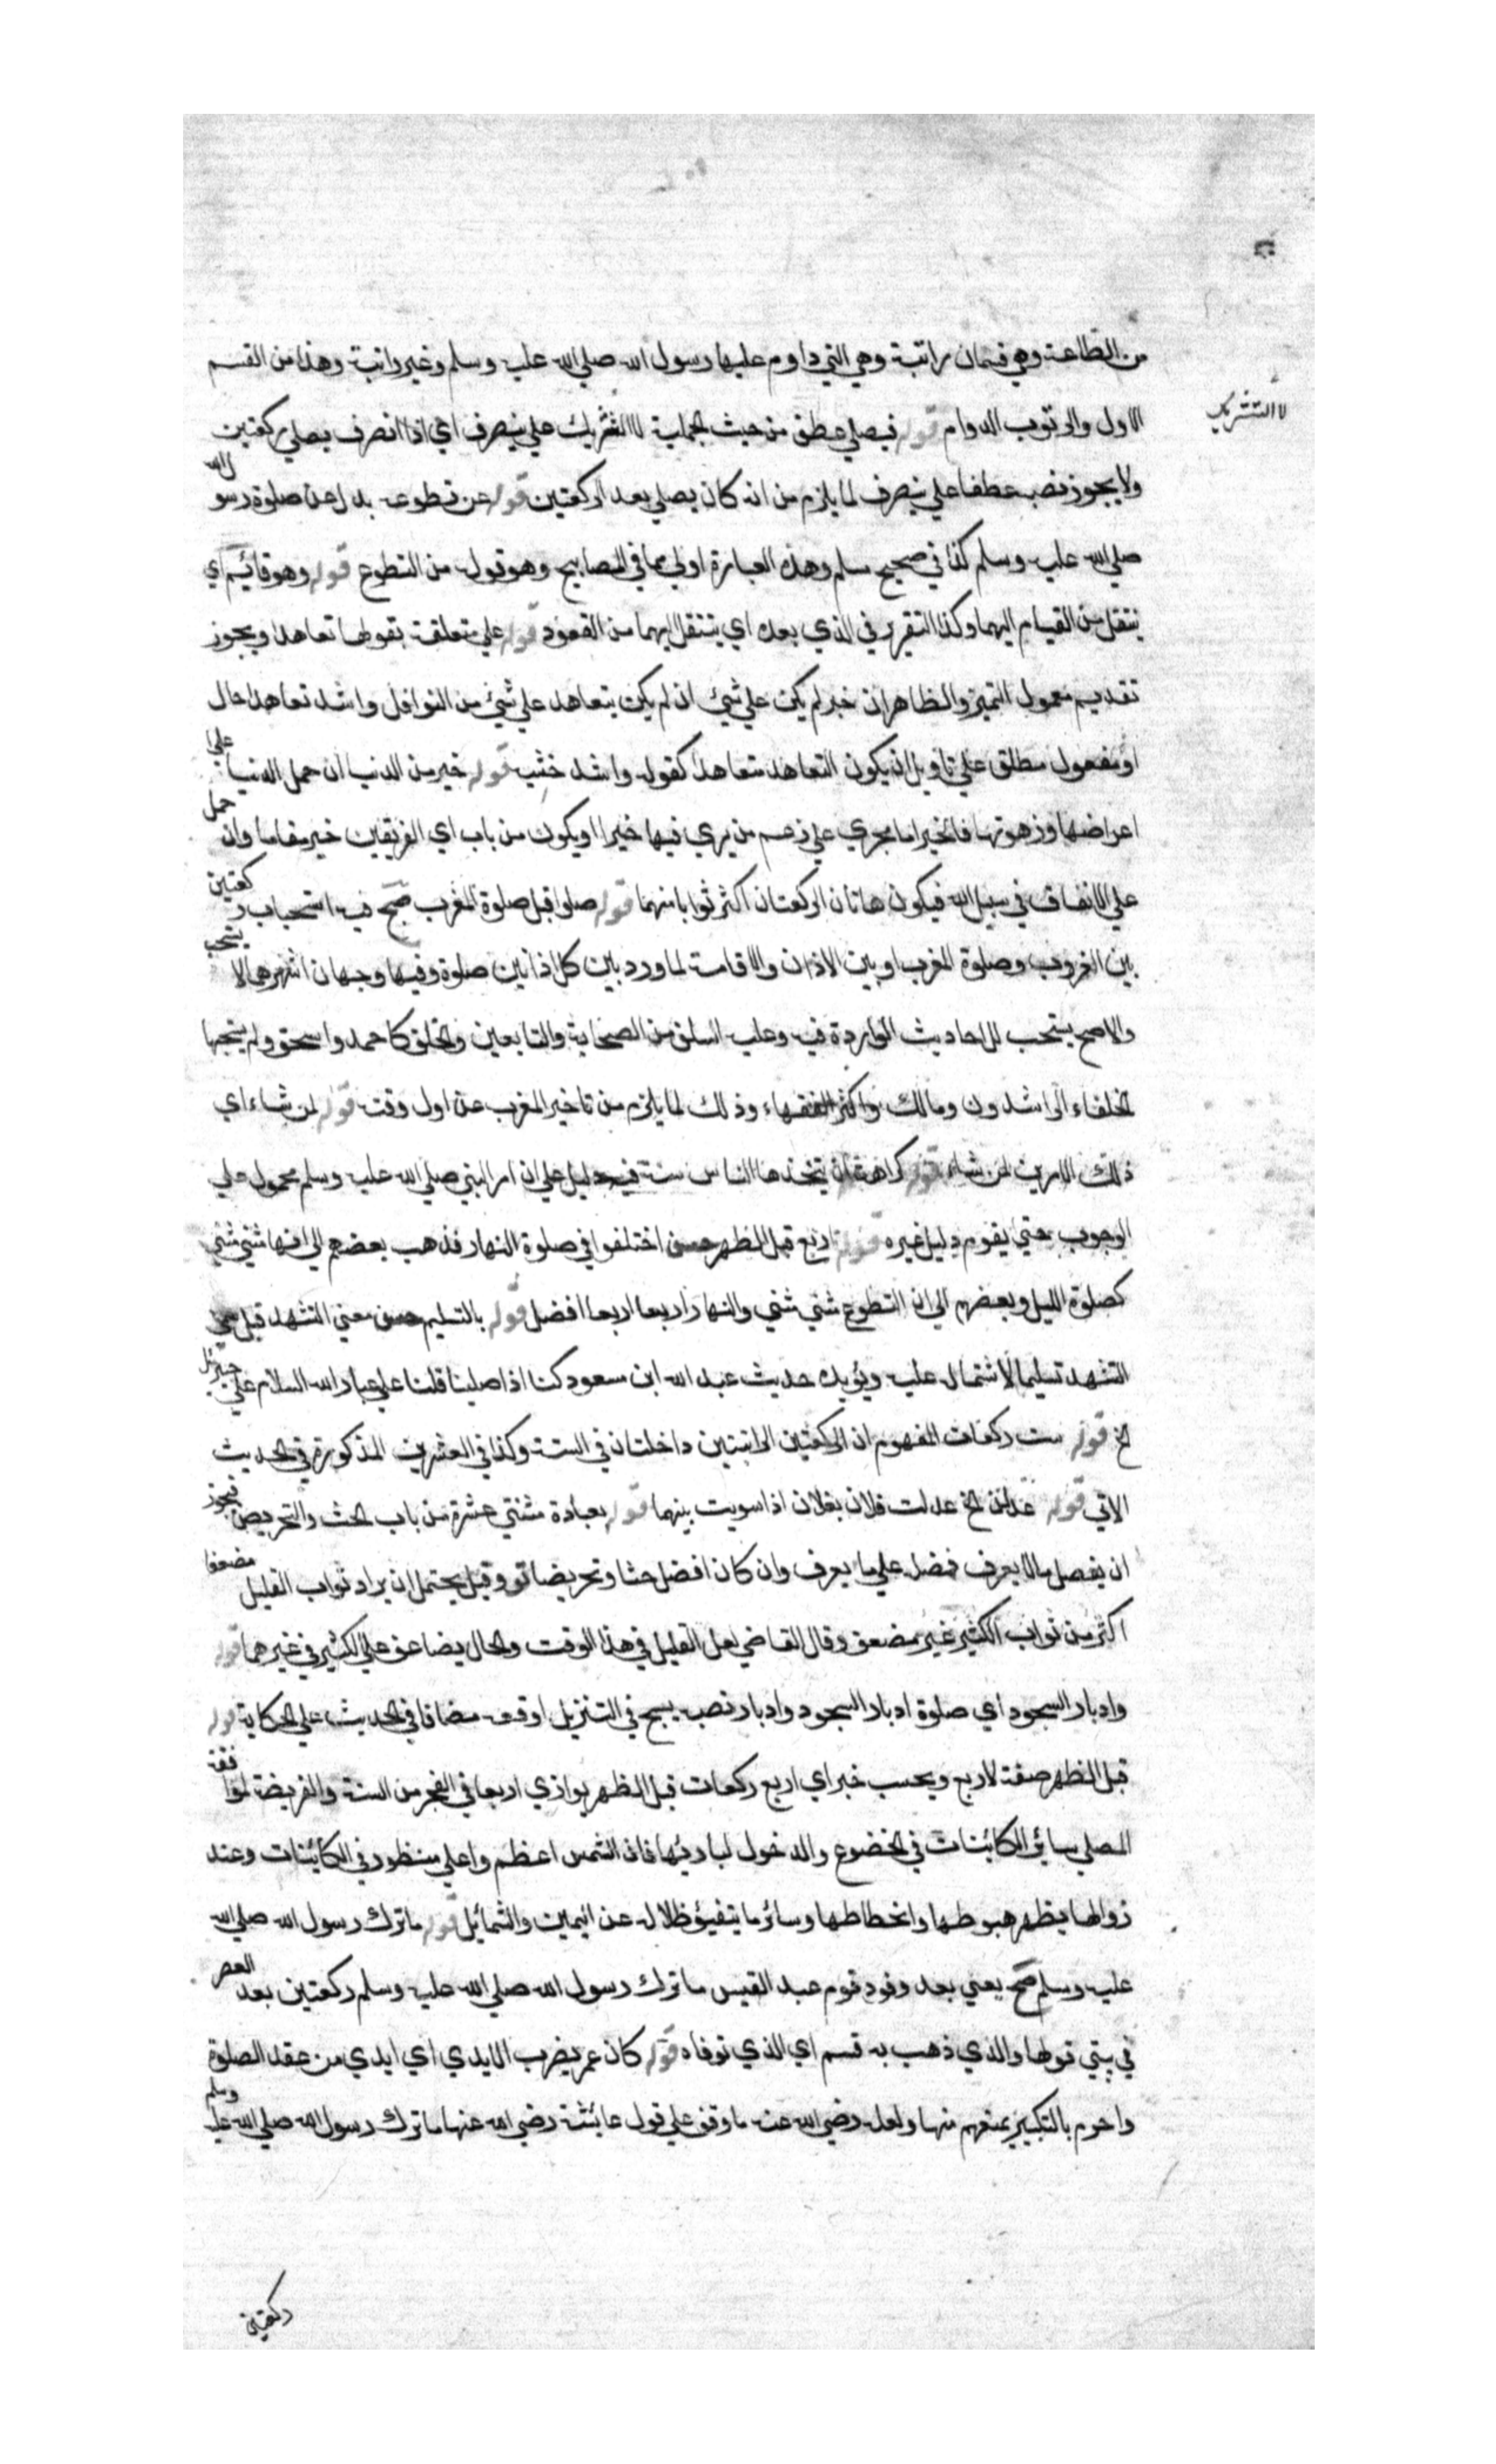 من الطاعة وهي قسمان راتبة وهي التي داوم عليها رسول الله صلي الله عليه وسلم وغير راتبة وهذا من القسم
لا التشريك
الاول والرتوب الدوام قوله فيصلي عطف من حيث الجملية لا التشريك علي ينصرف اي اذا انصرف يصلي ركعتين
ولا يجوز نصبه عطفا علي ينصرف لما يلزم من انه كان يصلي بعد الركعتين قوله عن تطوعه بدل عن صلوة رسول الله
صلي الله عليه وسلم كذا في صحيح مسلم وهذه العبارة اولي مما في المصابيح وهو قوله من التطوع قوله وهو قائم اي
ينتقل من القيام اليهما وكذا التقرير في الذي بعده اي ينتقل اليهما من القعود قوله علي متعلقة بقولها تعاهدا ويجوز
تقديم معمول التميز والظاهر ان خبر لم يكن علي شيئ ان لم يكن يتعاهد علي شيئ من النوافل واشد تعاهدا حال
او مفعول مطلق علي تاويل ان يكون التعاهد متعاهدا كقوله واشد خشية قوله خير من الدنيا ان حمل الدنيا علي
اعراضها وزهوتها فالخير اما مجري علي زعم من يري فيها خيرا او يكون من باب اي الفريقين خير مقاما وان حمل
علي الانفاق في سبيل الله فيكون هاتان الركعتان اكثر ثوابا منهما قوله صلوا قبل صلوة المغرب صح فيه استحباب ركعتين
بين الغروب وصلوة المغرب او بين الاذان والاقامة لما ورد بين كل اذانين صلوة وفيها وجهان اشهرهما لا يستحب
والاصح يستحب للاحاديث الواردة فيه وعليه السلف من الصحابة والتابعين والخلف كاحمد واسحق ولم يستحبها
الخلفاء الراشدون ومالك واكثر الفقهاء وذلك لما يلزم من تاخير المغرب عن اول وقته قوله لمن شاء اي
ذلك الامرين لمن شاء قوله كراهة ان يتخذها الناس سنة فيه دليل علي ان امر النبي صلي الله عليه وسلم محمول علي
الوجوب حتي يقوم دليل غيره قوله اربع قبل الظهر حسن اختلفوا في صلوة النهار فذهب بعضهم الي انها مثني مثني
كصلوة الليل وبعضهم الي ان التطوع مثني مثني والنهار اربعا اربعا افضل قوله بالتسليم حسن يعني التشهد قيل سمي
التشهد تسليما لاشتماله عليه ويؤيده حديث عبد الله ابن مسعود كنا اذا صلينا قلنا علي عباد الله السلام علي جبرئيل
الخ قوله ست ركعات المفهوم ان الركعتين الراتبتين داخلتان في الستة وكذا في العشرين المذكورة في الحديث
الاتي قوله عدلن الخ عدلت فلان بفلان اذا سويت بينهما قوله بعبادة ثنتي عشرة من باب الحث والتحريض فيجوز
ان يفضل مالا يعرف فضله علي ما يعرف وان كان افضل حثا وتحريضا تو وقيل يحتمل ان يراد ثواب القليل مضعفا
اكثر من ثواب الكثير غير مضعف وقال القاضي لعل القليل في هذا الوقت والحال يضاعف علي الكثير في غيرهما قوله
وادبار السجود اي صلوة ادبار السجود وادبار نصب بسبح في التنزيل اوقعه مضافا في الحديث علي الحكاية قوله
قبل الظهر صفة لاربع ويحسب خبر اي اربع ركعات قبل الظهر يوازي اربعا في الفجر من السنة والفريضة لموافقة
المصلي سائر الكائنات في الخضوع والدخول لبارئها فان الشمس اعظم واعلي منظور في الكائنات وعند
زوالها يظهر هبوطها وانحطاطها وسائر ما يتفيؤ ظلاله عن اليمين والشمائل قوله ما ترك رسول الله صلي الله
عليه وسلم صح يعني بعد وفود قوم عبد القيس ما ترك رسول الله صلي الله عليه وسلم ركعتين بعد العصر
في بيتي قولها والذي ذهب به قسم اي الذي توفاه قوله كان عمر يضرب الايدي اي ايدي من عقد الصلوة
واحرم بالتكبير يمنعهم منها ولعله رضي الله عنه ما وقف علي قول عائشة رضي الله عنها ما ترك رسول الله صلي الله عليه وسلم
ركعتين